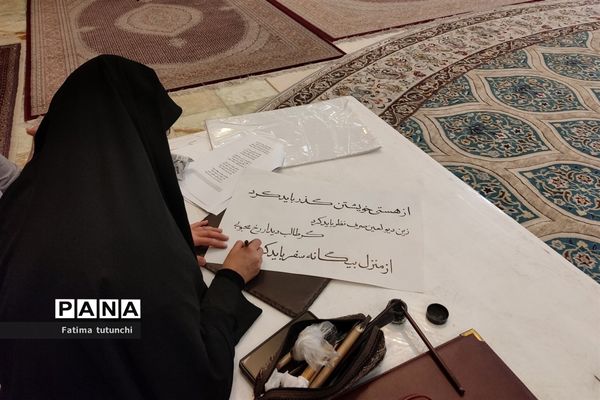 از هستی خویشتن گذر باید کرد
زین دیو لعین صرف نظر باید کرد
گر طالب دیدار رخ محبوبی
از منزل بیگانه سفر باید کر
PANA
Fatima tutunchi